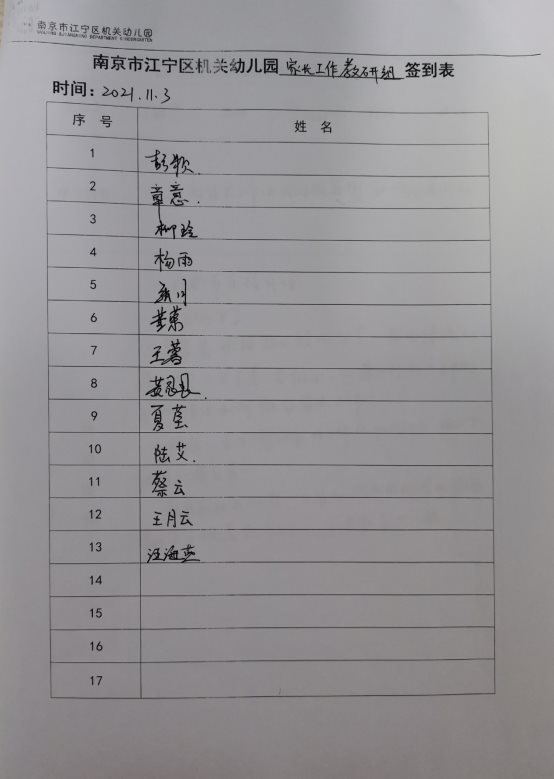 南京市江宁区机关幼儿园
NANJING JIANGNING DEPARTMENT KINDERGARTEN
南京市江宁区机关幼儿园 家长工作教研组 签到表
时间：2021.11.3
序 号 姓 名
1 彭颖.
2 章意.
3 柳玲
4 杨雨
5
6 黄蓉
7 王蕾
8
9 夏莹
10 陆艾.
11 蔡云
12 王月云
13 汪海燕
14
15
16
17